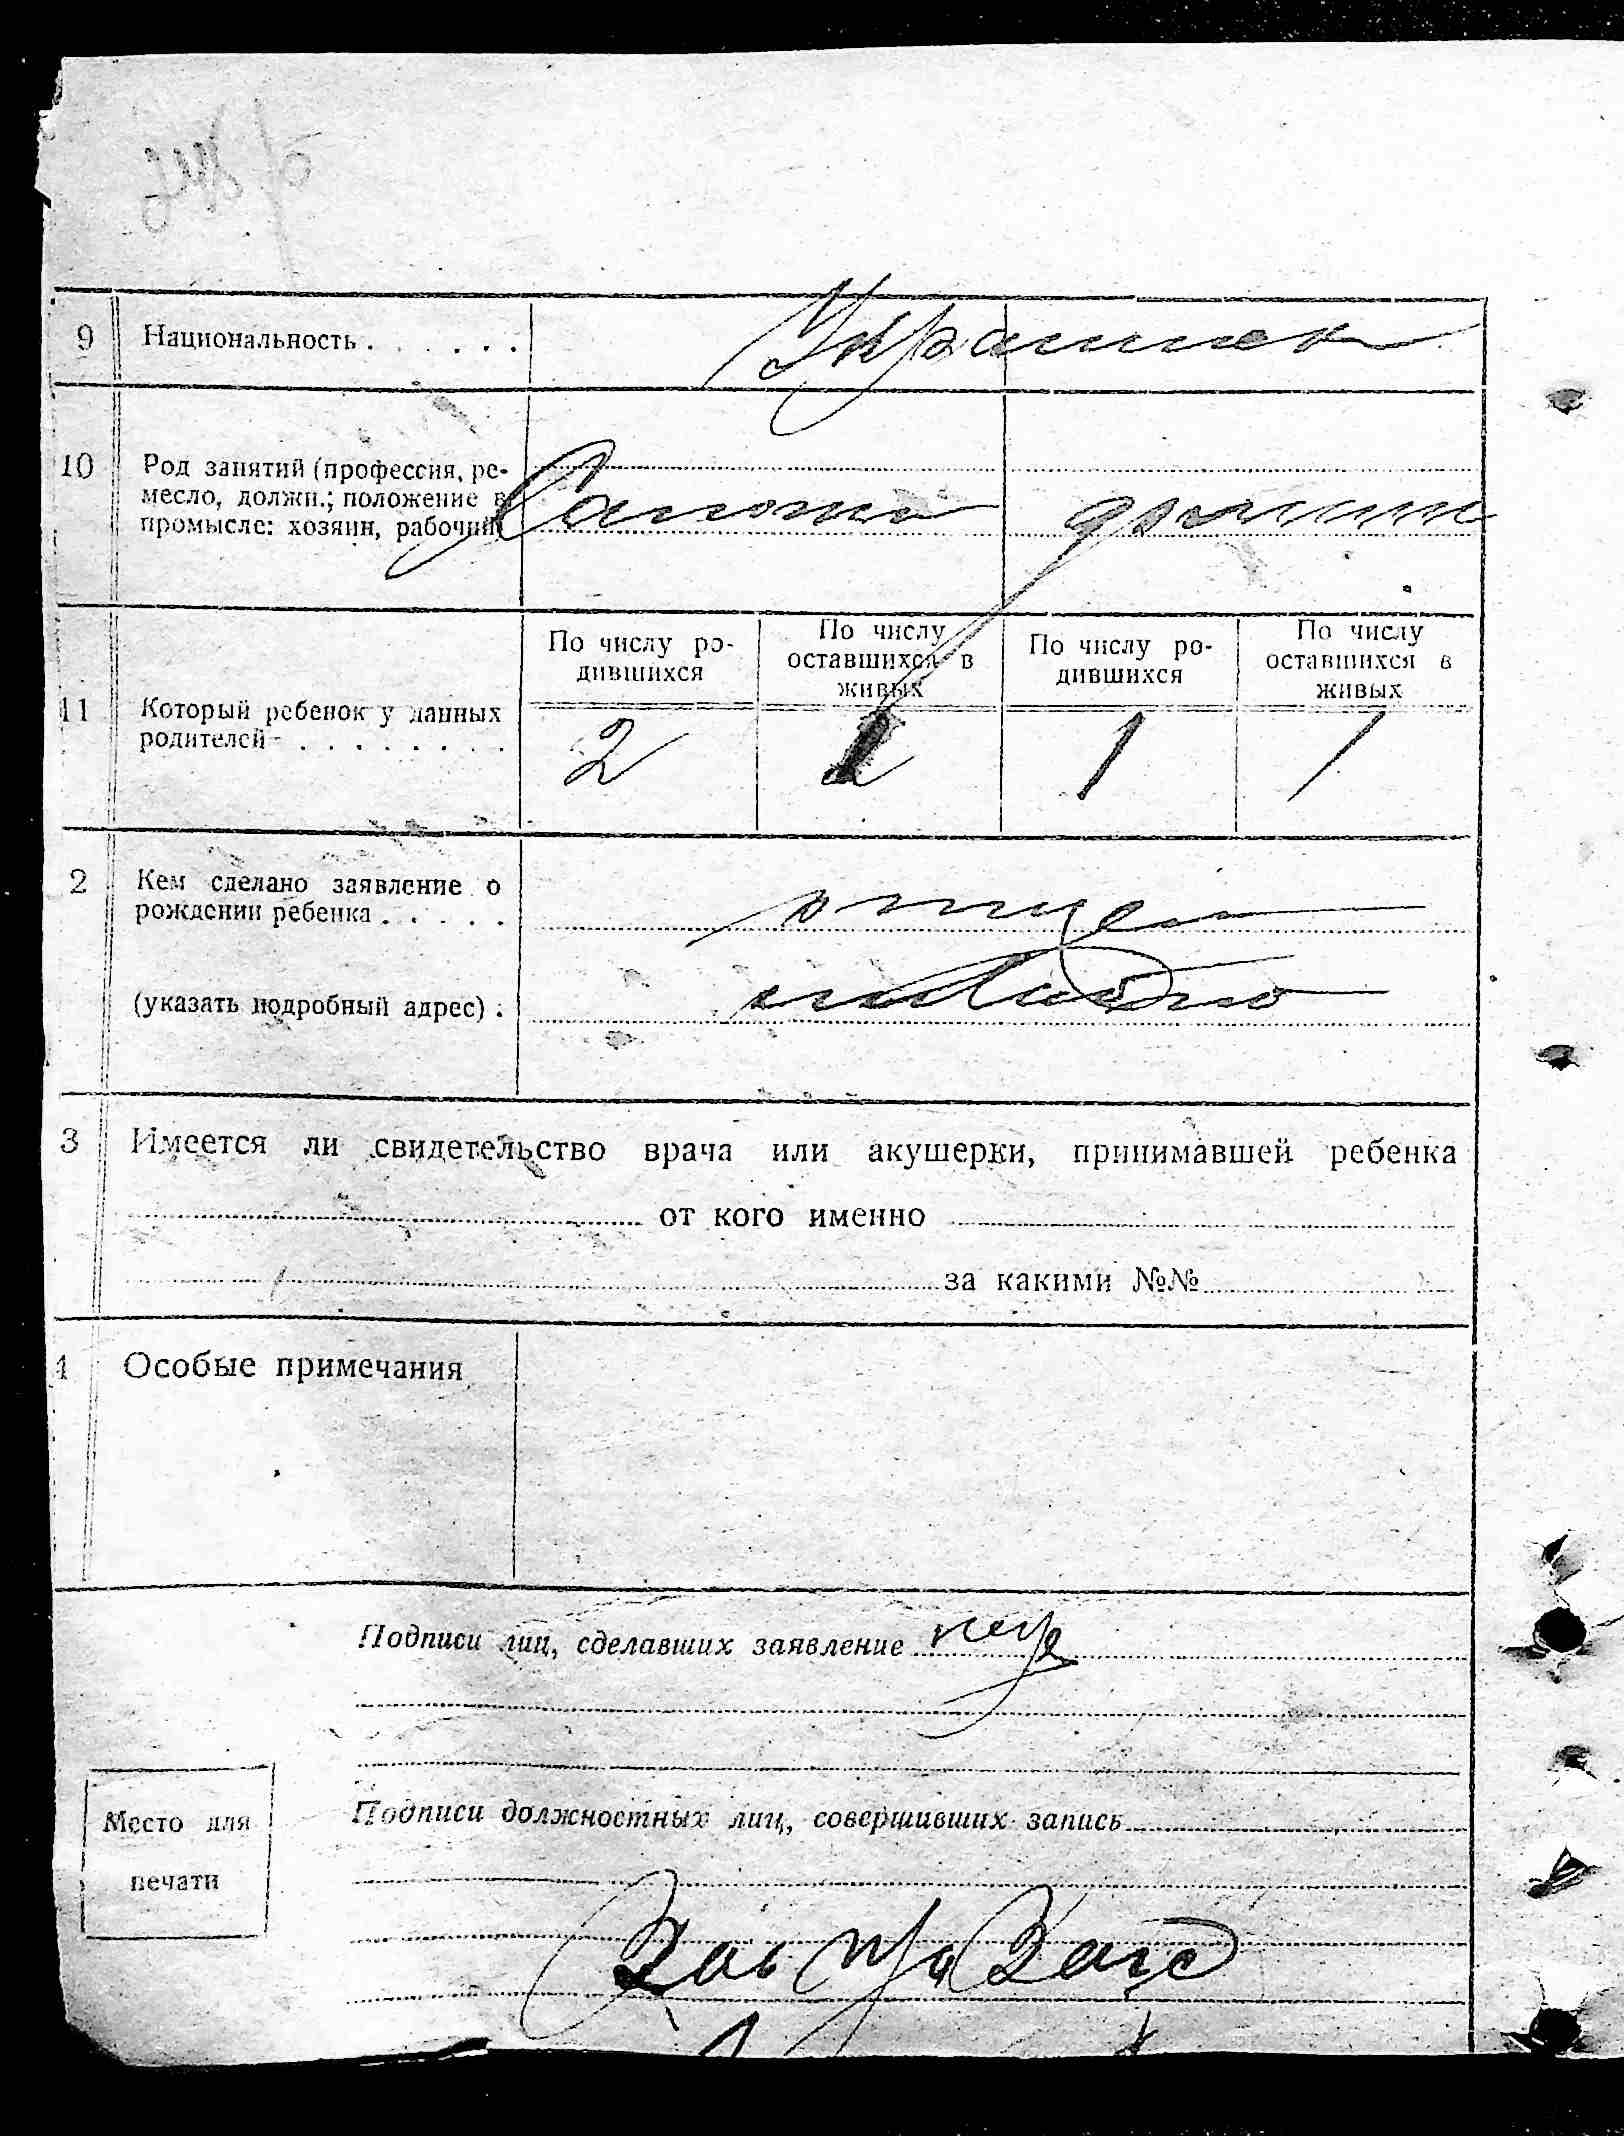 9 Национальность . . . . . . Украинец
10 Род занятий (профессия, ре-
месло, должн.; положение в
промысле: хозяин, рабочий)
По числу ро-
дившихся
По числу
оставшихся в
живых
По числу ро-
дившихся
По числу
оставшихся в
живых
11 Который ребенок у данных
родителей . . . . . . . .
2 1 1
2 Кем сделано заявление о
рождении ребенка . . . . . отцем
(указать подробный адрес) .
3 Имеется ли свидетельство врача или акушерки, принимавшей ребенка
от кого именно
за какими №№
4 Особые примечания
Подписи лиц, сделавших заявление
Подписи должностных лиц, совершивших запись
Место для
печати